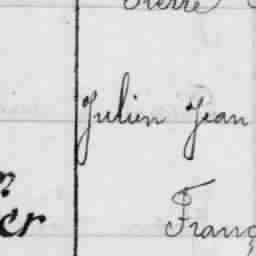 Pierre
Julien Jean
er
Franç